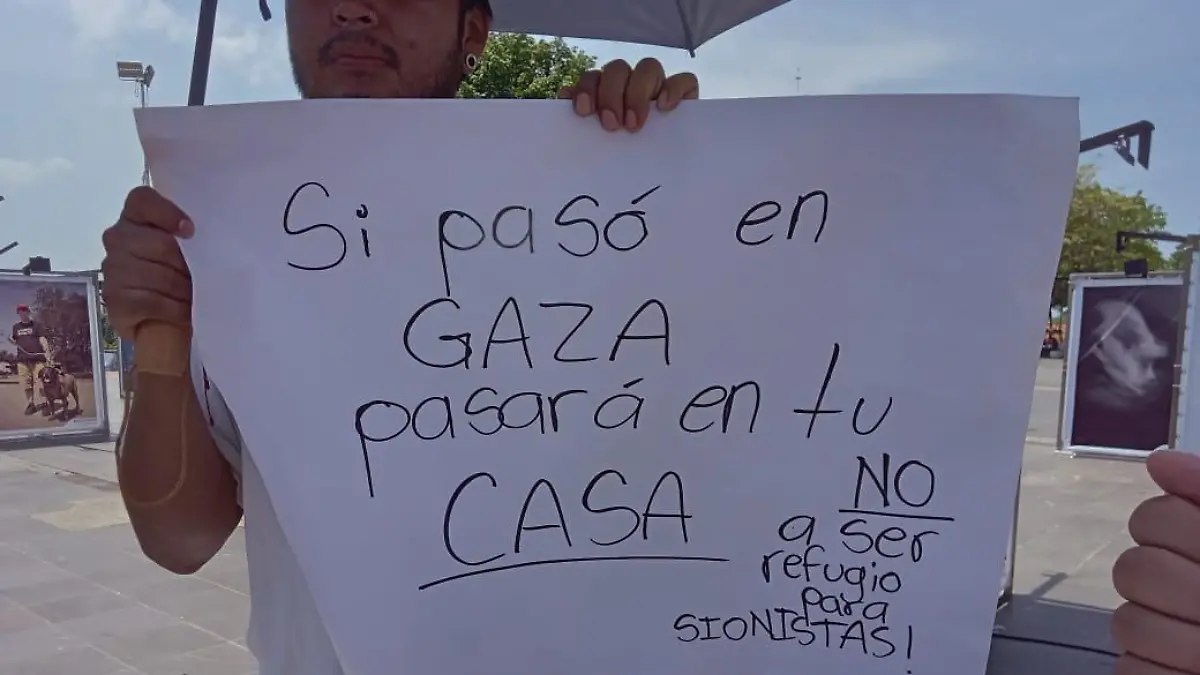 Si pasó en
GAZA
pasará en tu
CASA
NO
a ser
refugio
para
SIONISTAS!